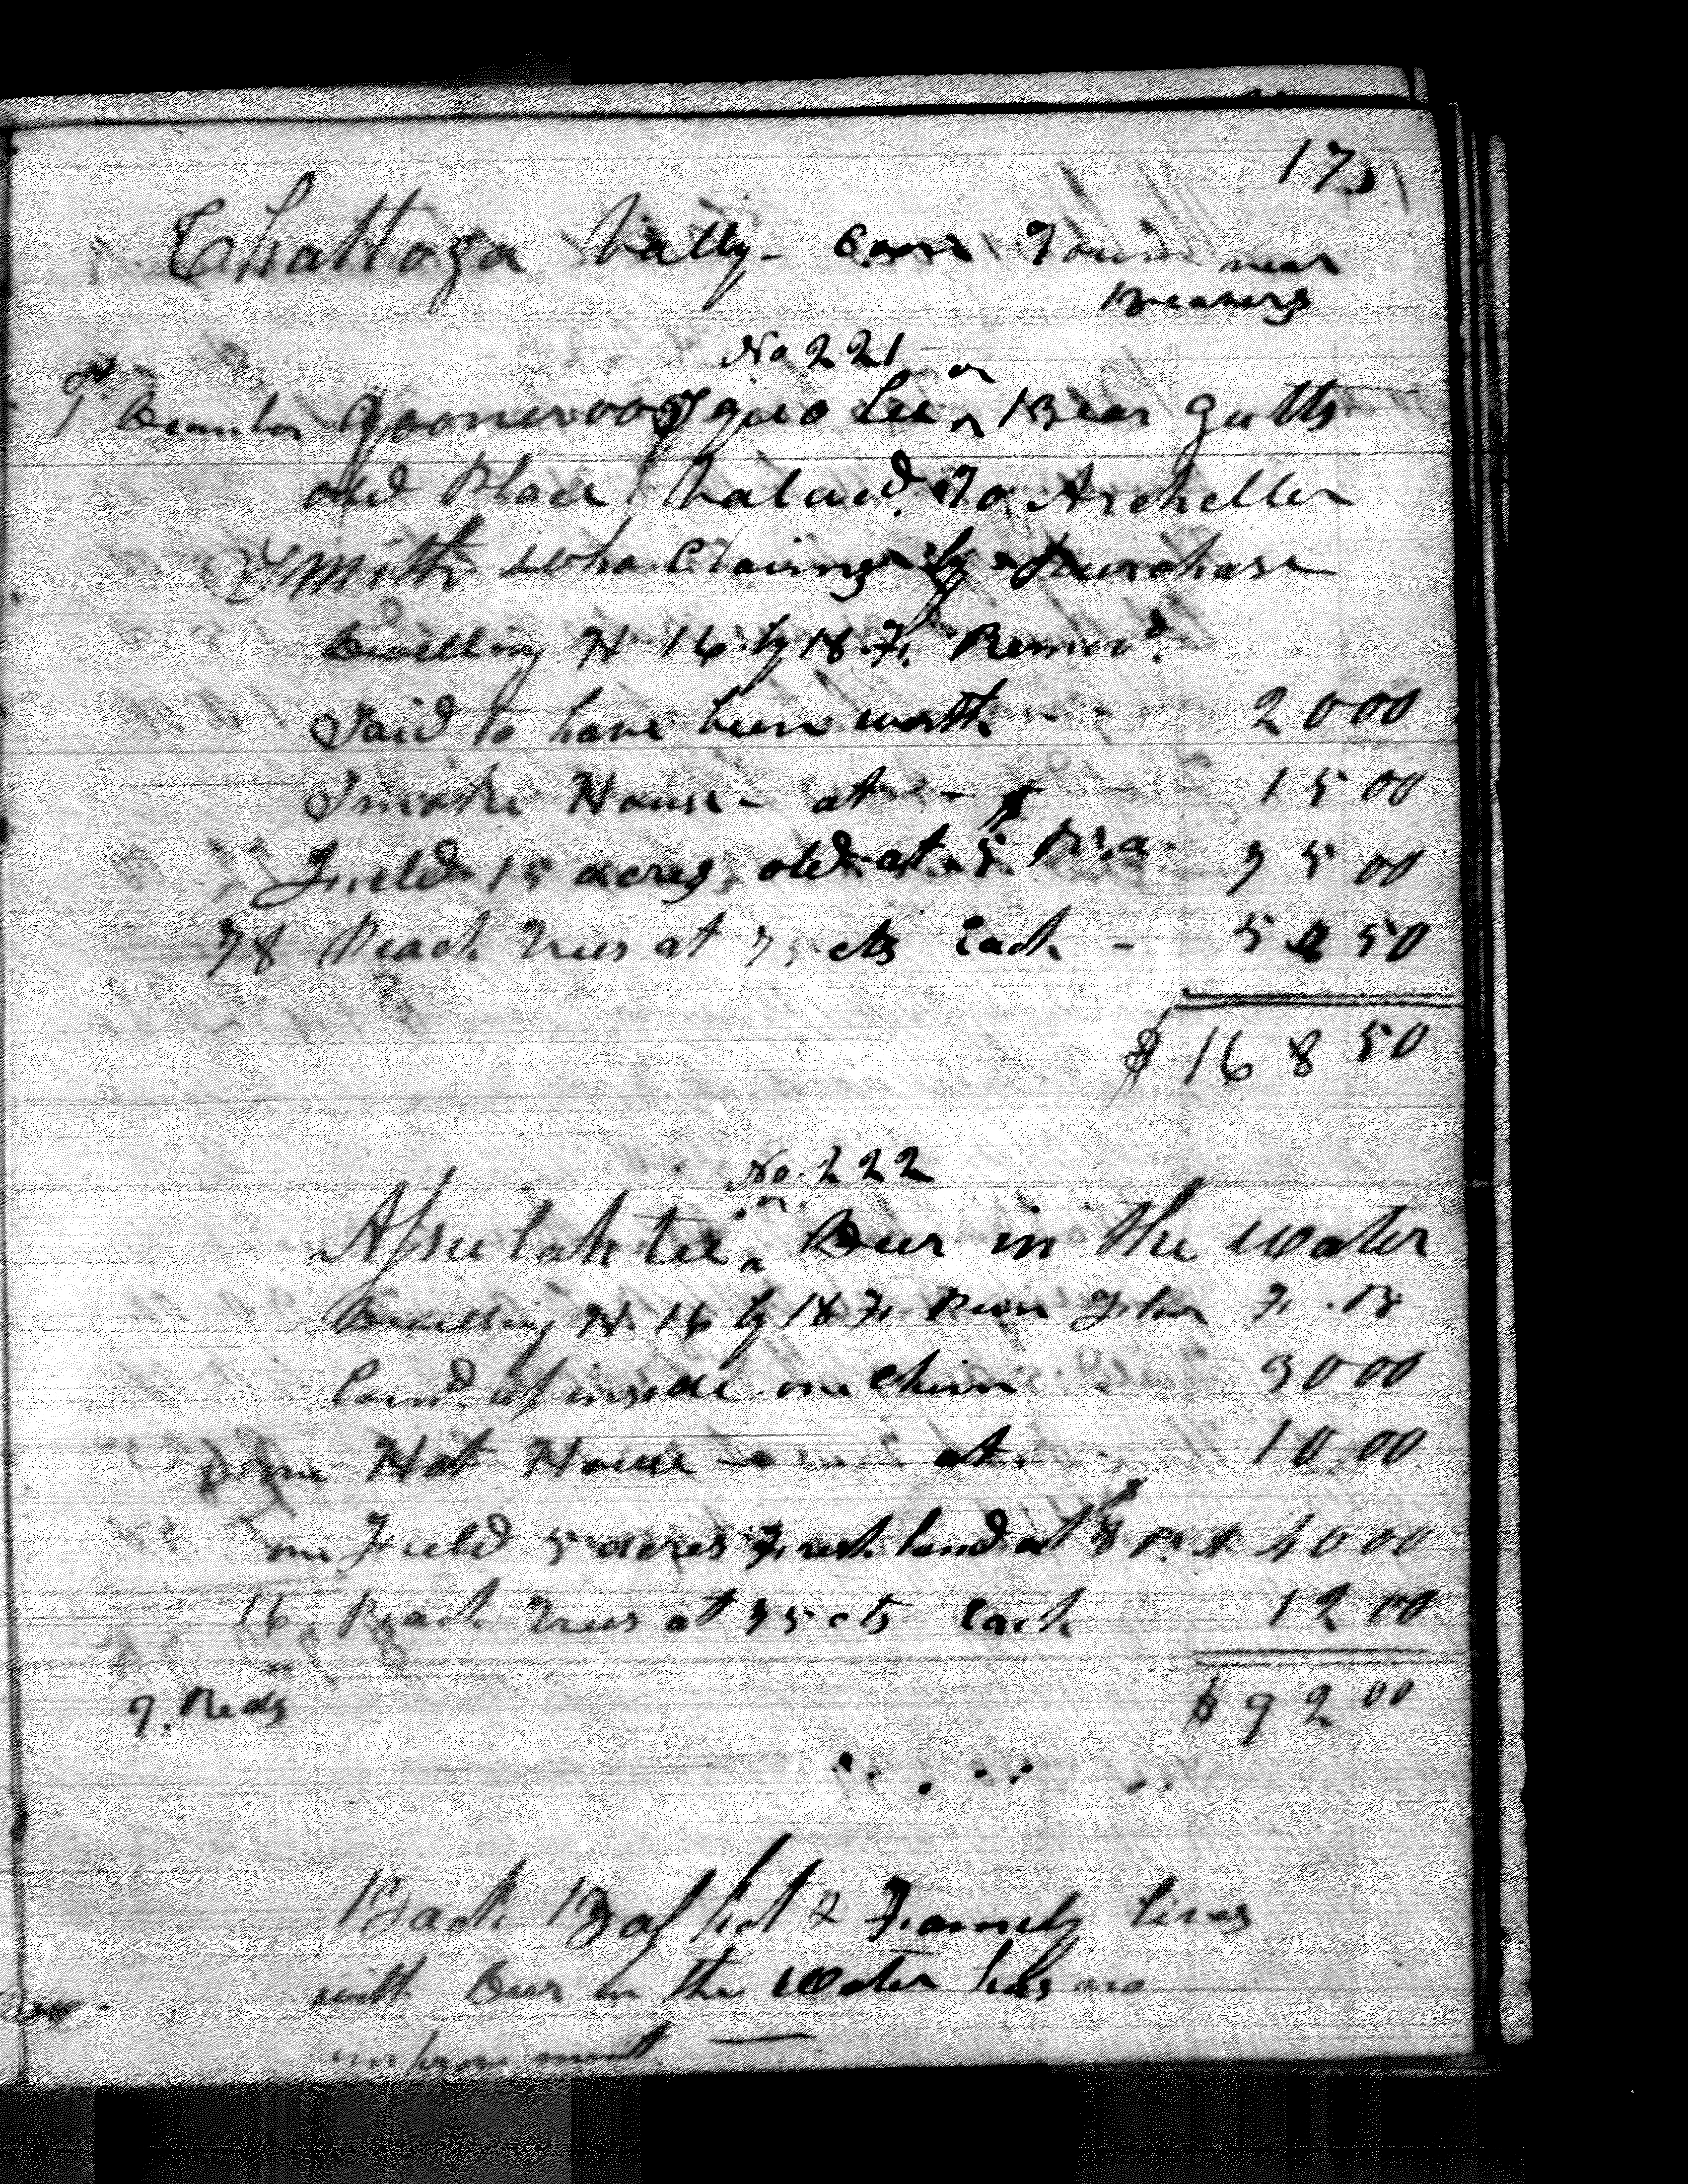 17
Chattoga Vally - Town near
No 221 or
Bear Gutts
old Place Valued To Archeller
Smith who Claims by Purchase
Dwelling H 16 by 18 Ft. Remov^d.
Said to have been worth - - 20 00
Smoke House - at - $ - 15 00
Field 15 acres old at 5 Pr. a. 75 00
78 Peach Trees at 75 cts Each - 58 50
$ 168 50
No. 222
or
Deer in the water
Dwelling H. 16 by 18 Ft
up inside one Chim - 30 00
one Hot House - at - 10 00
$
one Field 5 acres Fresh land at 8 Pr. A. 40 00
16 Peach Trees at 75 cts Each 12 00
9. Reds $ 92 00
Back Basket & Famely lives
with Deer in the water has no
improvement —